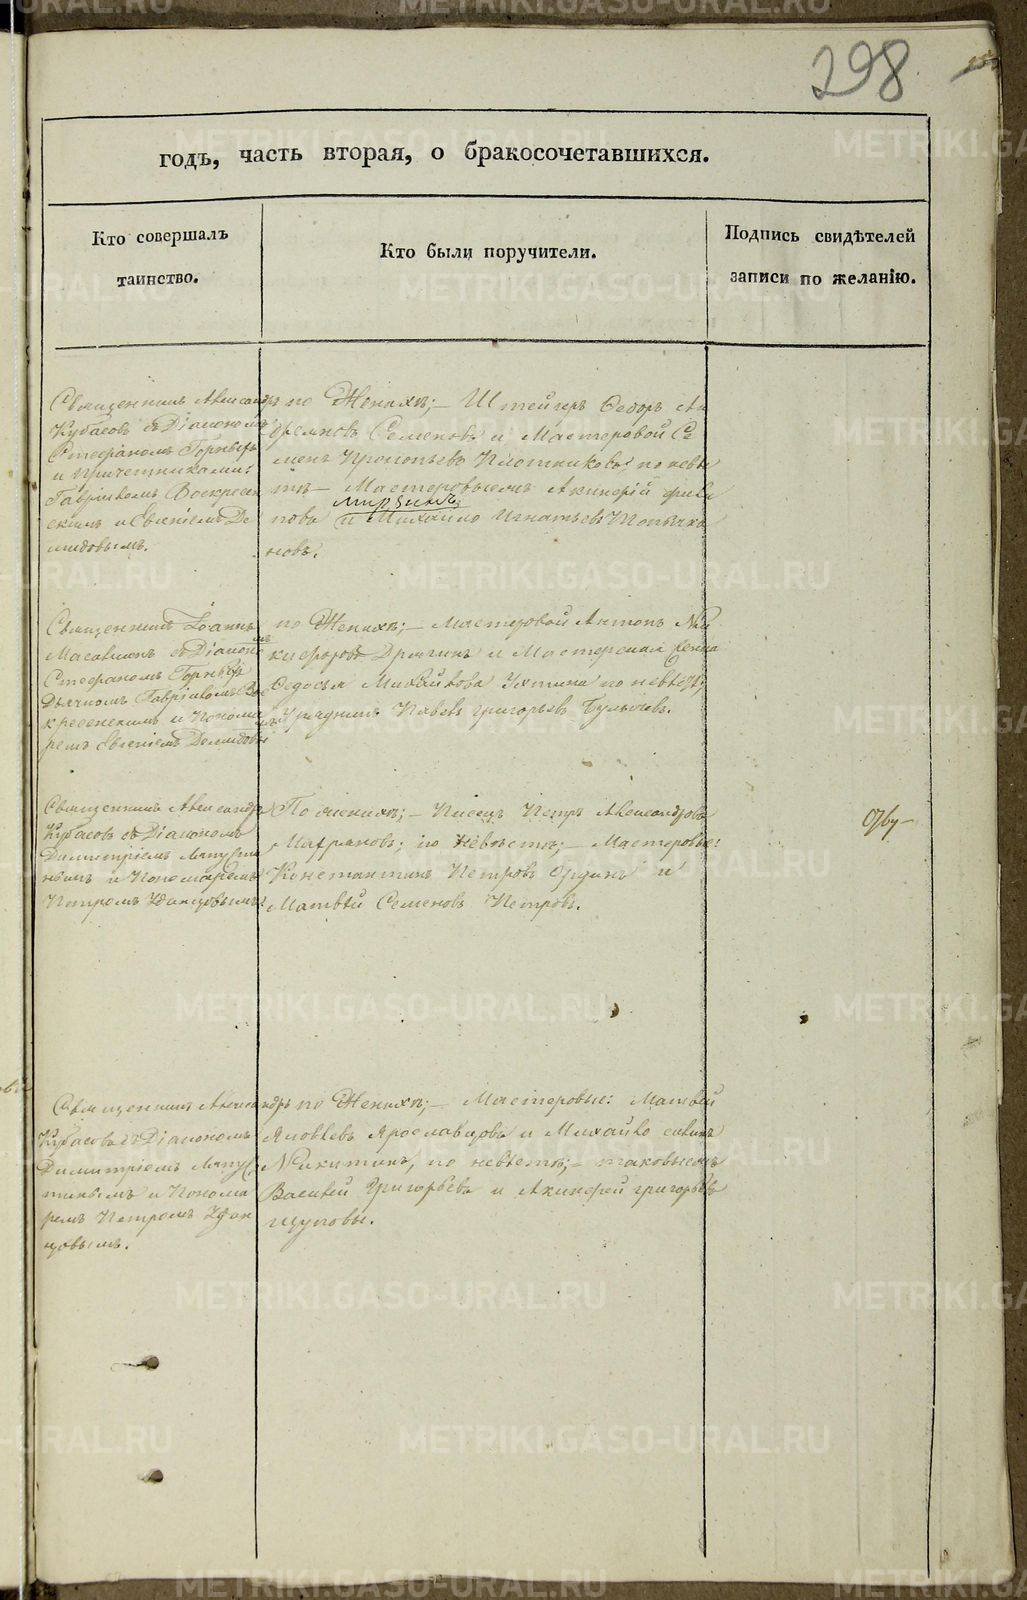 298
годъ, часть вторая, о бракосочетавшихся.
Кто совершалъ
таинство.
Кто были поручители.
Подпись свидѣтелей
записи по желанію.
Священникъ Александръ
Кубасовъ съ Діакономъ
Стефаномъ
и причетниками:
Гавріиломъ Воскресен
скимъ и Евгеніемъ Де
мидовымъ.
по Женихѣ; — Штейгеръ Ѳедоръ Ан
дреяновъ Семеновъ и Мастеровой Се
менъ Прокопьевъ Плотниковъ; по невѣ
стѣ — Мастеровые:
повъ и Михайло Игнатьевъ
новъ.
Священникъ Іоаннъ
съ Діакон
Стефаномъ
Дьячкомъ Гавріиломъ Вос
кресенскимъ и Понома
ремъ Евгеніемъ Демидовы
по Женихѣ; — Мастеровой Антонъ Ни
кифоровъ и Мастерская жена
Ѳедосья Михайлова по невѣстѣ;
Урядникъ Павелъ Григорьевъ Булычевъ.
Священникъ Александръ
Кубасовъ съ Діакономъ
Димитріемъ Ляпусти
нымъ и Пономаремъ
Петромъ Удинцовымъ
По женихѣ; — Писецъ Петръ Александровъ
по невѣстѣ; — Мастеровые:
Константинъ Петровъ и
Матвѣй Семеновъ Петровъ.
Священникъ Александръ
Кубасовъ съ Діакономъ
Димитріемъ Ляпус
тинымъ и Понома
ремъ Петромъ Удин
цовымъ.
по Женихѣ; — Мастеровые: Матвѣй
Яковлевъ Ярославцовъ и Михайло
Никитинъ, по невѣстѣ; — таковые же
Василій Григорьевъ и Акинфей Григорьевъ
Щуповы.
METRIKI.GASO-URAL.RU